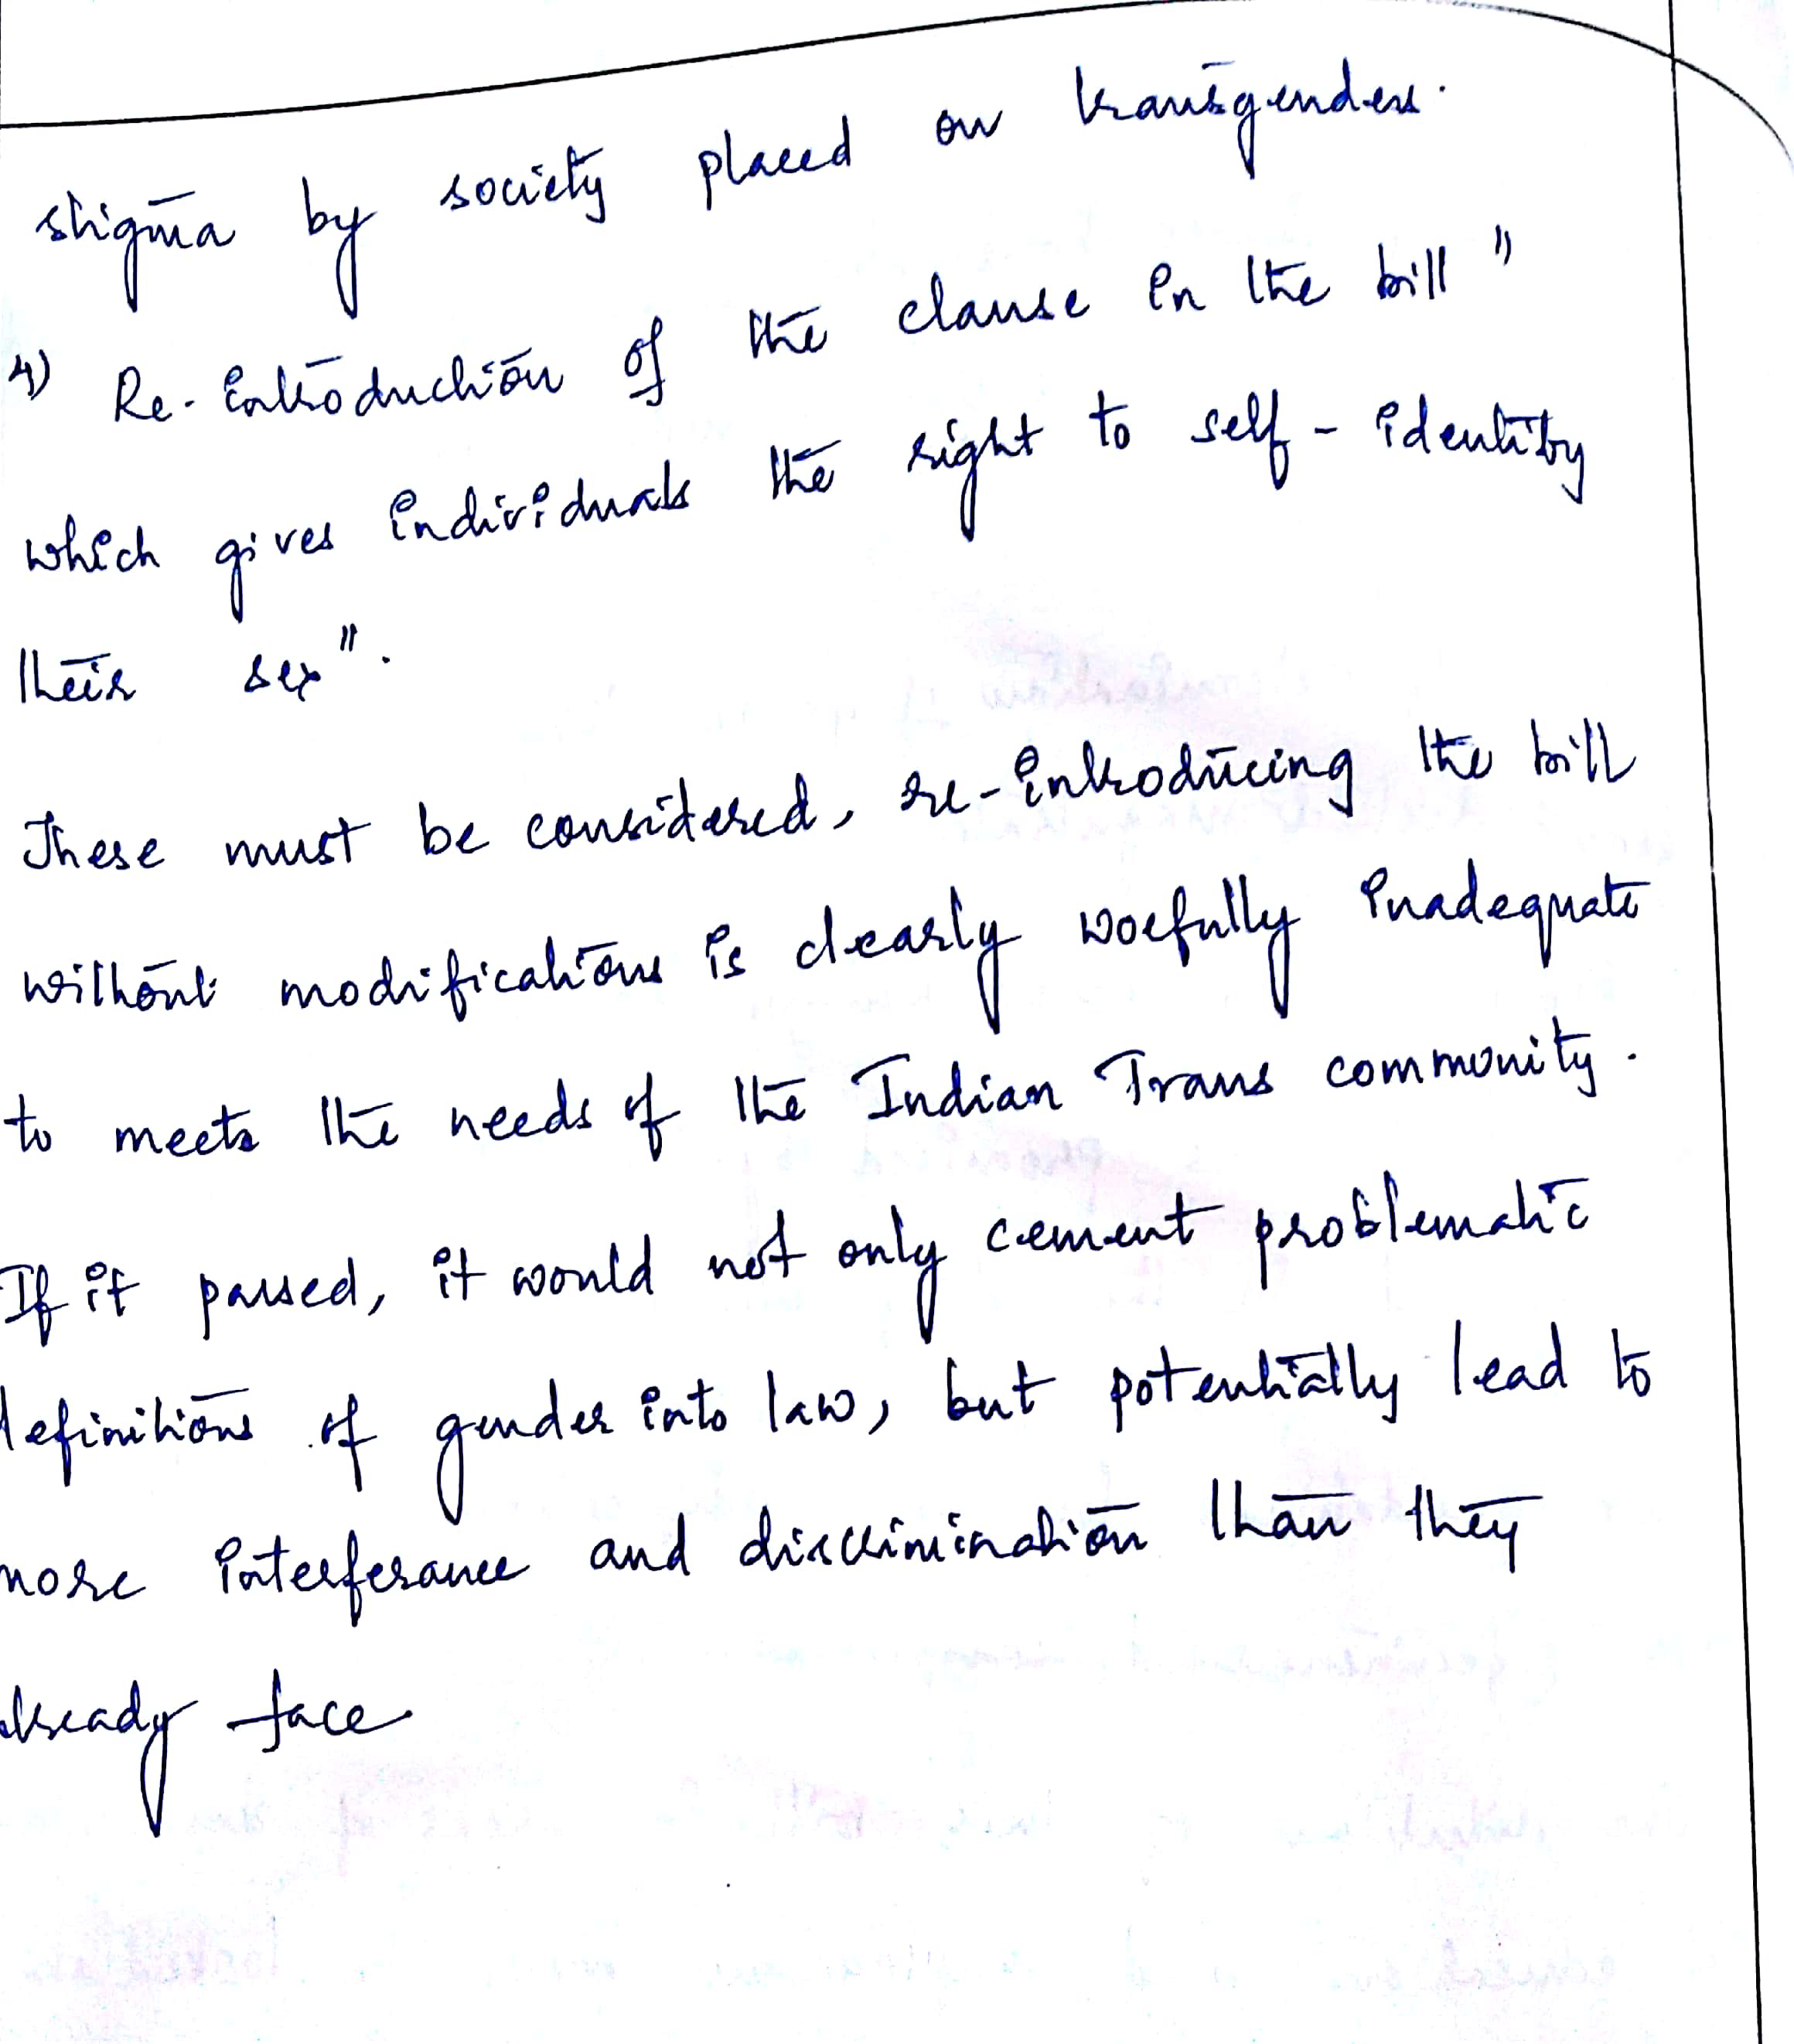 stigma by society placed on transgenders.
4) Re-introduction of the clause in the bill "
which gives individuals the right to self - identity
their sex".
These must be considered, re-introducing the bill
without modifications is clearly woefully inadequate
to meets the needs of the Indian Trans commonity.
If it passed, it would not only cement problematic
definitions of gender into law, but potentially lead to
more interferance and discriminination than they
already face